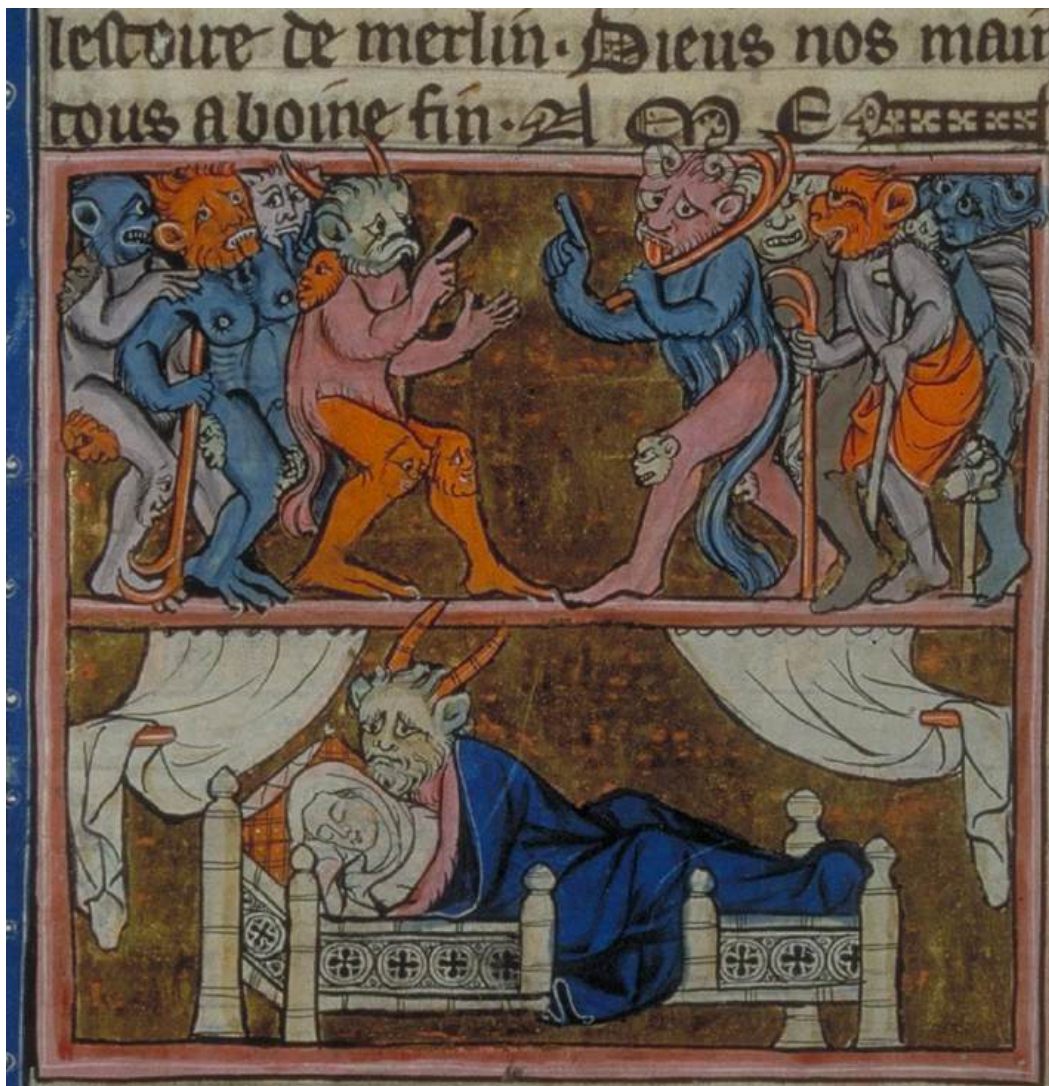 lestoire de merlin · Dieus nos main
tous a boine fin · A M E N